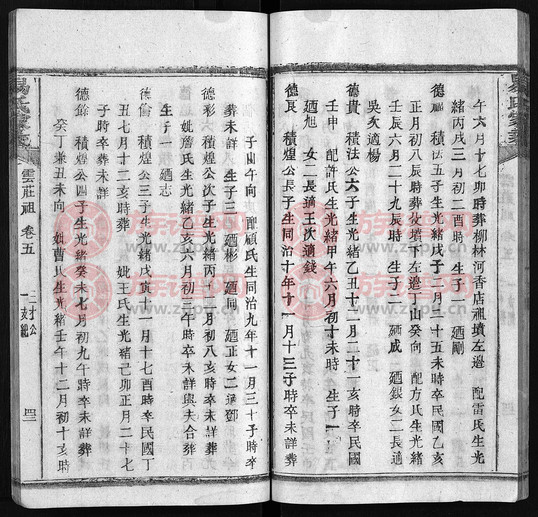 午六月十七卯時葬柳林河香店祖墳左邊　配雷氏生光
緒丙戌三月初二酉時　生子一　廼剛
德　積法公五子生光緒戊子二月二十五未時卒民國乙亥
正月初八辰時葬父墳下左邊丁山癸向　配方氏生光緒
壬辰六月二十九辰時　生子二　廼咸　廼銀　女二長適
吳次適楊
德貴　積法公六子生光緒乙丑十二月二十一亥時卒民國
壬申　配許氏生光緒甲午六月初十未時　生子一
廼旭　女二長適王次適錢
德良　積煌公長子生同治十年十一月十三子時卒未詳葬
子山午向　配顧氏生同治九年十一月三十子時卒
葬未詳　生子三　廼彬　廼同　廼正　女二適鄧
德彩　積煌公次子生光緒丙子十一月初八亥時卒未詳葬
妣詹氏生光緒乙亥六月初三午時卒未詳與夫合葬
生子一　廼志
德倫　積煌公三子生光緒戊寅十一月十七酉時卒民國丁
丑七月十二亥時葬　妣王氏生光緒己卯正月二十七
子時卒葬未詳
德餘　積煌公四子生光緒癸未七月初九午時卒未詳葬
癸丁兼丑未向　妣曹氏生光緒壬午十二月初十亥時
易氏家乘
雲莊祖　卷五
族譜網
www.zupu.cn